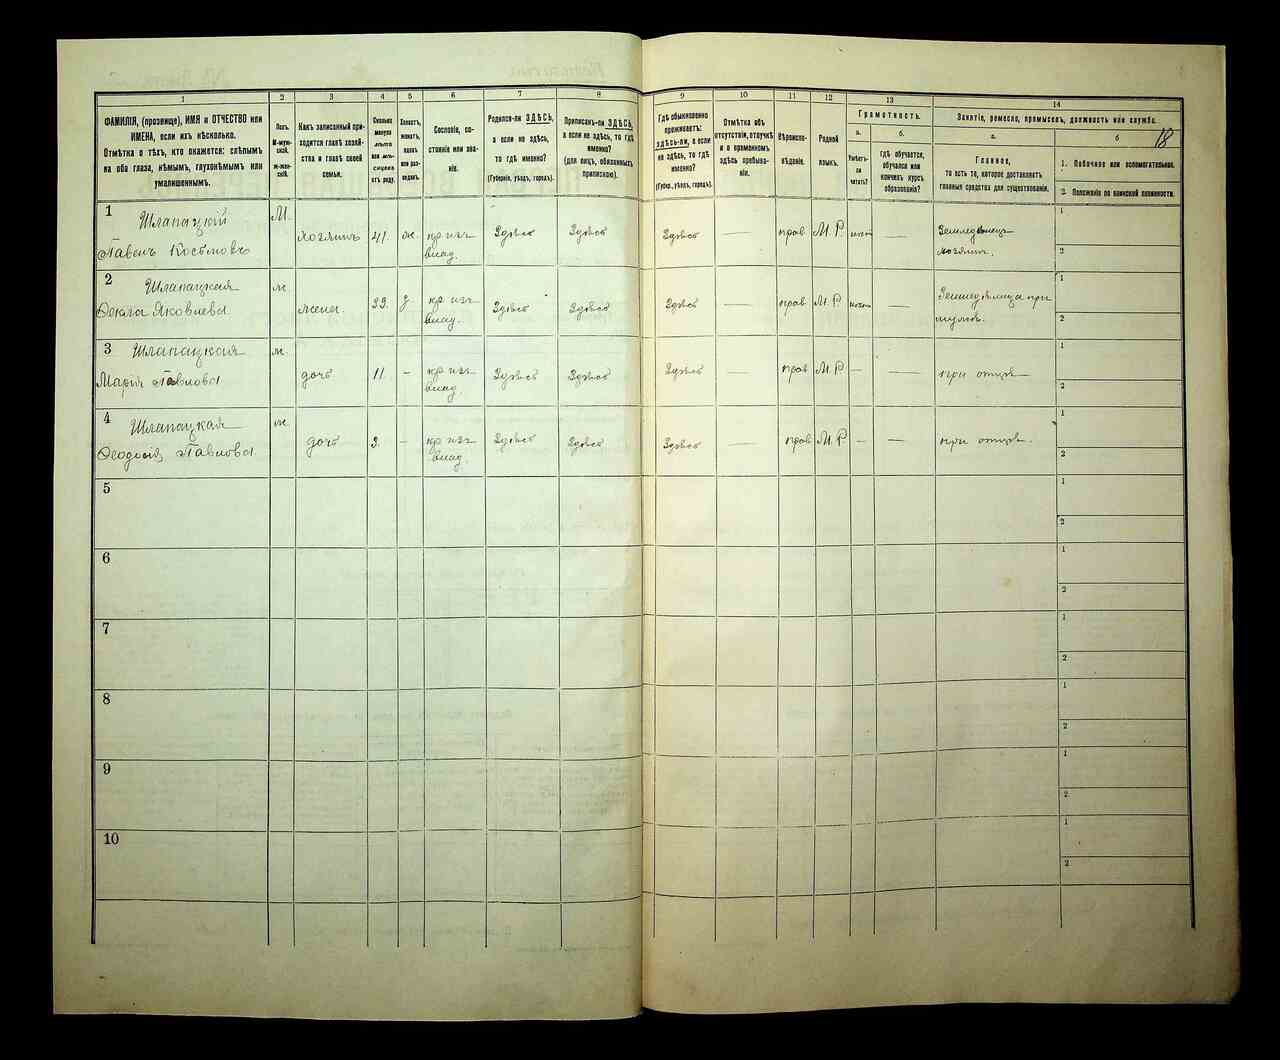 1 2 3 4 5 6 7 8 9 10 11 12 13 14
ФАМИЛІЯ, (прозвище), ИМЯ и ОТЧЕСТВО или
ИМЕНА, если ихъ нѣсколько.
Отмѣтка о тѣхъ, кто окажется: слѣпымъ
на оба глаза, нѣмымъ, глухонѣмымъ или
умалишеннымъ.
Полъ.
М-муж-
ской.
ж-жен-
скій.
Какъ записанный при-
ходится главѣ хозяй-
ства и главѣ своей
семьи.
Сколько
минуло
лѣтъ
или мѣ-
сяцевъ
отъ роду.
Холостъ,
женатъ,
вдовъ
или раз-
веденъ.
Сословіе, со-
стояніе или зва-
ніе.
Родился-ли ЗДѢСЬ,
а если не здѣсь,
то гдѣ именно?
(Губернія, уѣздъ, городъ).
Приписанъ-ли ЗДѢСЬ,
а если не здѣсь, то гдѣ
именно?
(для лицъ, обязанныхъ
припискою).
Гдѣ обыкновенно
проживаетъ:
здѣсь-ли, а если
не здѣсь, то гдѣ
именно?
(Губерн., уѣздъ, городъ).
Отмѣтка объ
отсутствіи, отлучкѣ
и о временномъ
здѣсь пребыва-
ніи.
Вѣроиспо-
вѣданіе.
Родной
языкъ.
Грамотность.
а.
Умѣетъ-
ли
читать?
б.
гдѣ обучается,
обучался или
кончилъ курсъ
образованія?
Занятіе, ремесло, промыселъ, должность или служба.
а.
Главное,
то есть то, которое доставляетъ
главныя средства для существованія.
б 18
1. Побочное или вспомогательное.
2. Положеніе по воинской повинности.
1 Шлапацкій М.
Павелъ Косьмовъ хозяинъ 41. ж. кр изъ Здѣсь Здѣсь Здѣсь — прав М. Р —
влад.
Земледѣлецъ 1
хозяинъ. 2
2 Шлапацкая ж
Ѳекла Яковлева жена 33. з кр изъ Здѣсь Здѣсь Здѣсь — прав М Р —
влад.
Земледѣлица при 1
мужѣ. 2
3 Шлапацкая ж
Марія Павлова дочь 11 - кр изъ Здѣсь Здѣсь Здѣсь — прав М. Р — — при отцѣ 1
влад. 2
4 Шлапацкая ж
Ѳеодосія Павлова дочь 3. - кр изъ Здѣсь Здѣсь Здѣсь — прав М. Р — — при отцѣ. 1
влад. 2
5 1
2
6 1
2
7 1
2
8 1
2
9 1
2
10 1
2